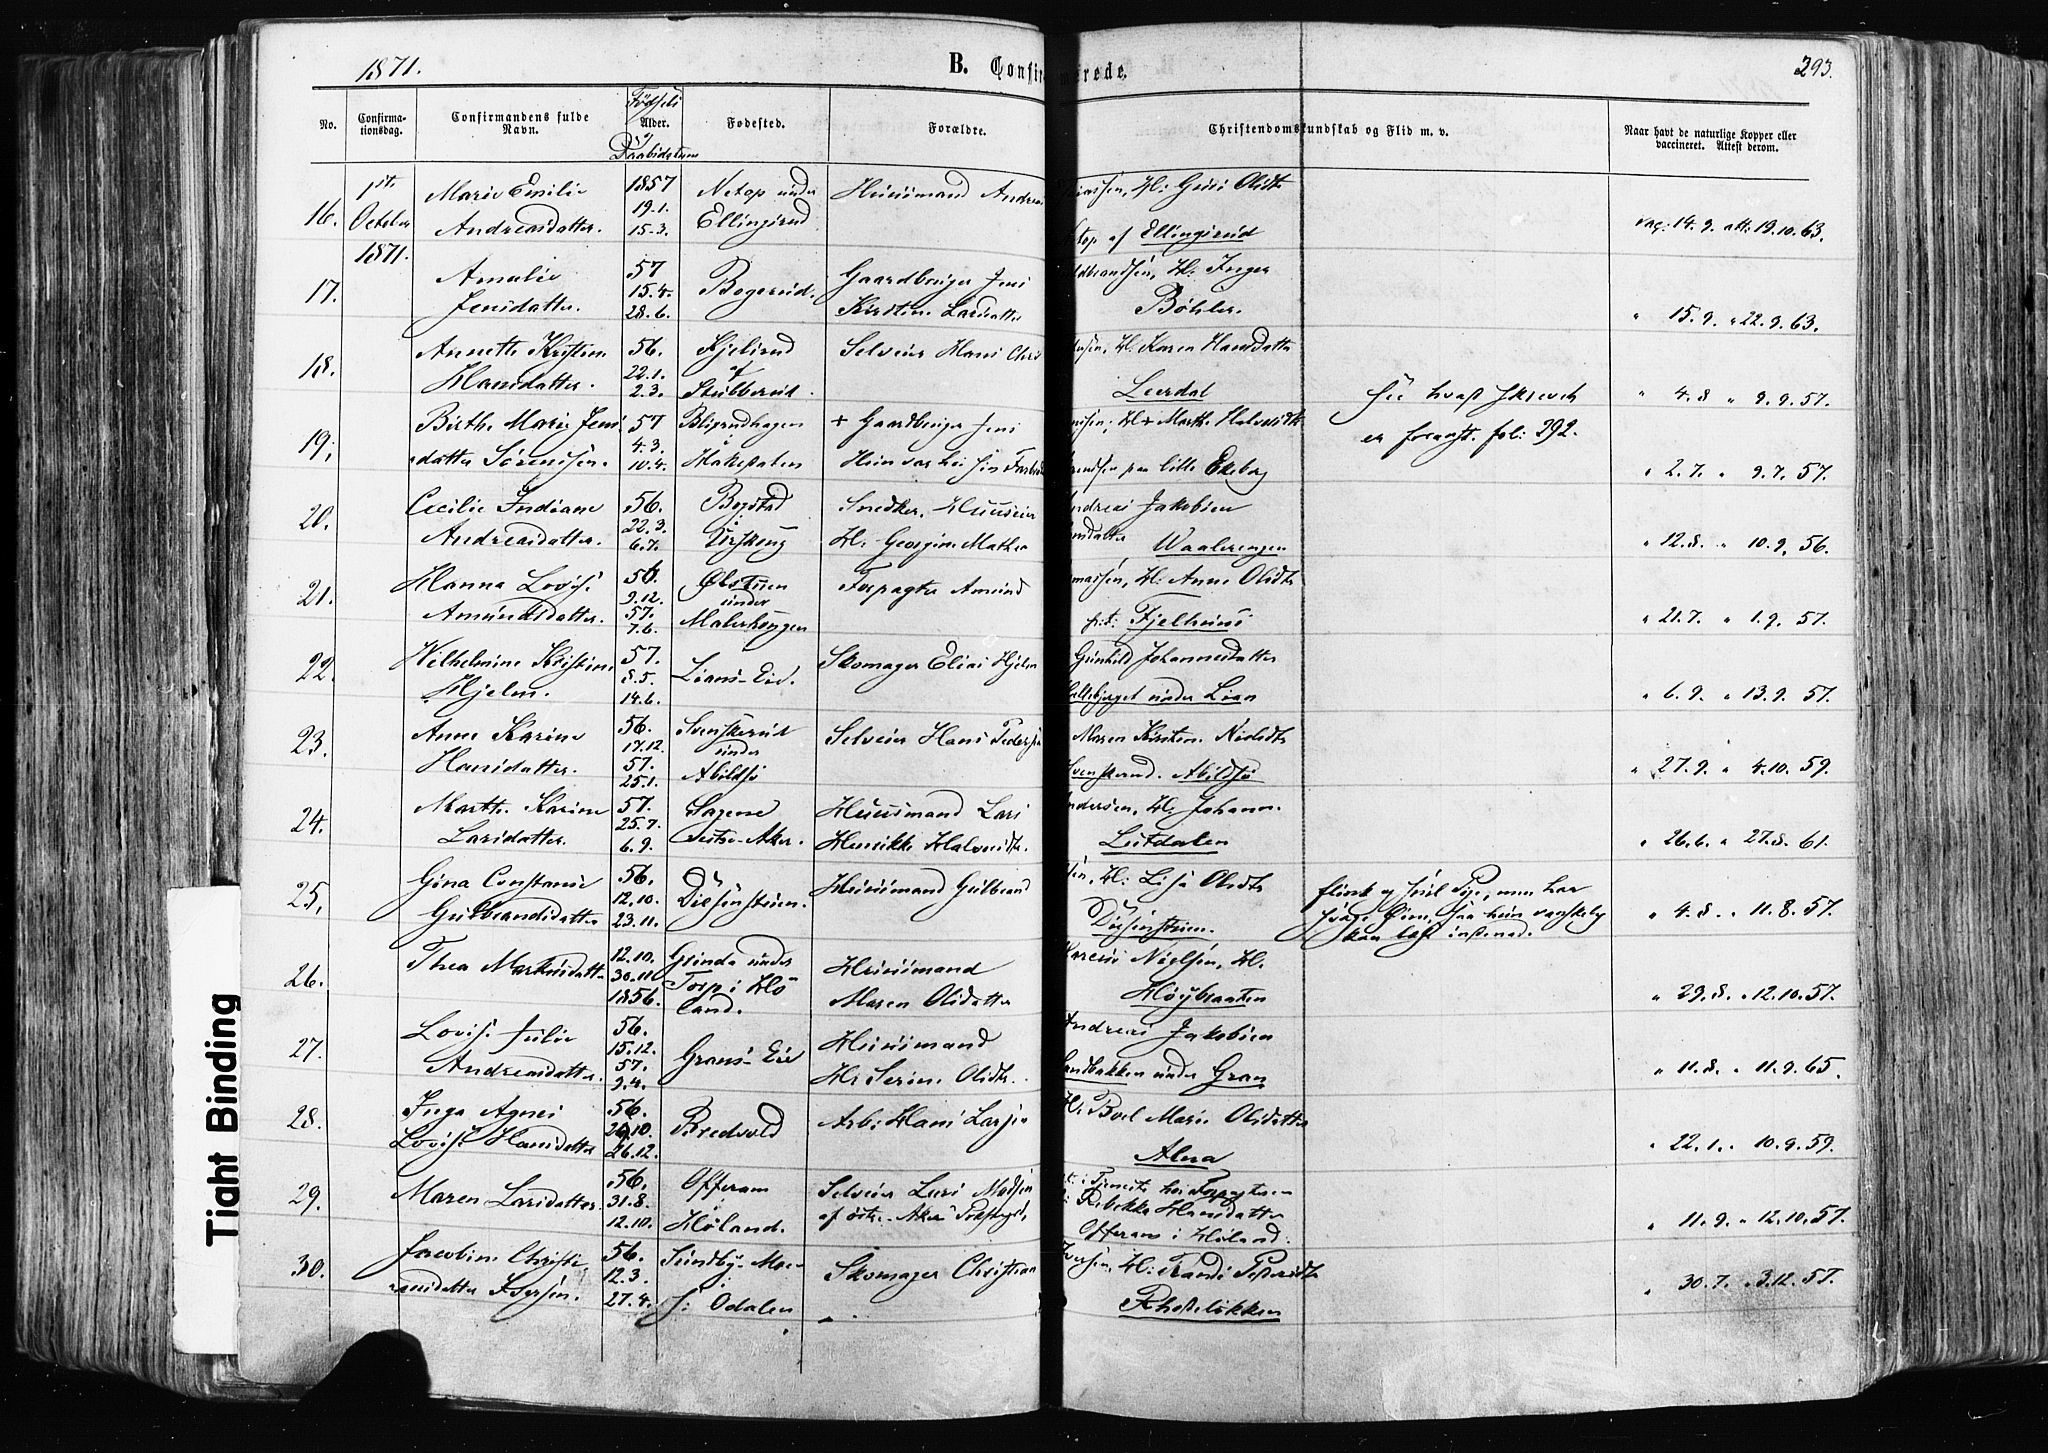 1871. B. Confirmerede. 293.
No. Confirma-tionsdag. Confirmandens fulde Navn. Fødsels Alder. Daabsdatum Fødested. Forældre. Christendomskundskab og Flid m. v. Naar havt de naturlige Kopper eller vaccineret. Attest derom.
16. 1st October 1871. Marie Emilie Andreasdatter. 1857 19.1. 15.3. Netop under Ellingsrud Huusmand Andreas H: Guri Olsdtr Netop af Ellingsrud vac: 14.9. att: 19.10.63.
17. Amalie Jensdatter. 57 15.4. 28.6. Bogerud. Gaardbruger Jens H: Inger Kirstine Larsdatter Bøhler. " 15.9. " 22.9.63.
18. Annette Kristine Hansdatter. 56. 22.1. 2.3. Stubberud. Selveier Hans H: Karen Hansdatter Leerdal " 4.8 " 9.9.57.
19. Birthe Marie Jensdatter Sørensen. 57 4.3. 10.4. + Gaardbruger Jens H + Marthe Halvorsdtr Hun var hos sin paa lille Ekeberg er fol: 292. " 2.7. " 9.7.57.
20. Cecilie Indiane Andreasdatter. 56. 22.3. 6.7. Bogstad Snedker, Huuseier Andreas Jakobsen H: Georgine Mathea Waalerengen " 12.8. " 10.9.56.
21. Hanna Lovise Amundsdatter. 56 9.12. 57. 7.6. under Forpagter Amund H: Anne Olsdtr Fjelhuus " 21.7. " 1.9.57.
22. Wilhelmine Kristine Hjelm. 57. 8.5. 14.6. Lians-Eie. Skomager Elias Hjelm Gunhild Johannesdatter under Lian " 6.9. " 13.9.57.
23. Anne Karine Hansdatter. 56. 17.12. 57. 25.1. Svenskerud under Abildsø Selveier Hans Pedersen Maren Kirstine Nielsdtr Svenskerud. Abildsø " 27.9. " 4.10.59.
24. Marthe Karine Larsdatter. 57. 25.7. 6.9. Sagene Vestre-Aker. Huusmand Lars Andersen, H: Johanne Henrikke Halvorsdtr. Lutdalen " 26.6. " 27.8.61.
25. Gina Constance Gulbrandsdatter 56. 12.10. 23.11. Disenstuen. Huusmand Gulbrand H: Lisa Olsdtr Disenstuen. flink og snil Pige, men har svage Øine, saa hun vanskelig kan læse indenad. " 4.8. " 11.8.57.
26. Thea Markusdatter 12.10. 30.11 1856. Grinda under Torp i Høland. Huusmand Marcus Nielsen, H: Maren Olsdatter Høybraaten " 29.8. " 12.10.57.
27. Lovise Julie Andreasdatter. 56. 15.12. 57. 9.4. Grans-Eie Huusmand Andreas Jakobsen H: Serine Olsdtr. Sandbakken under Gran " 11.8. " 11.9.65.
28. Inga Agnes Lovise Hansdatter 56. 26.12. Bredvold Arb: Hans Larsen H: Boel Marie Olsdatter Alna " 22.1. " 10.9.59.
29. Maren Larsdatter. 56. 31.8. 12.10. Offeram i Høland. Selveier Lars Madsen Rebekka Hansdatter Offeram i Høland. " 11.9. " 12.10.57.
30. Jacobine Christiansdatter Iversen. 56. 12.3. 27.4. Sundby i S: Odalen Skomager Christian Iversen, H: Randi Pedersdtr " 30.7. " 3.12.57.
Tight Binding